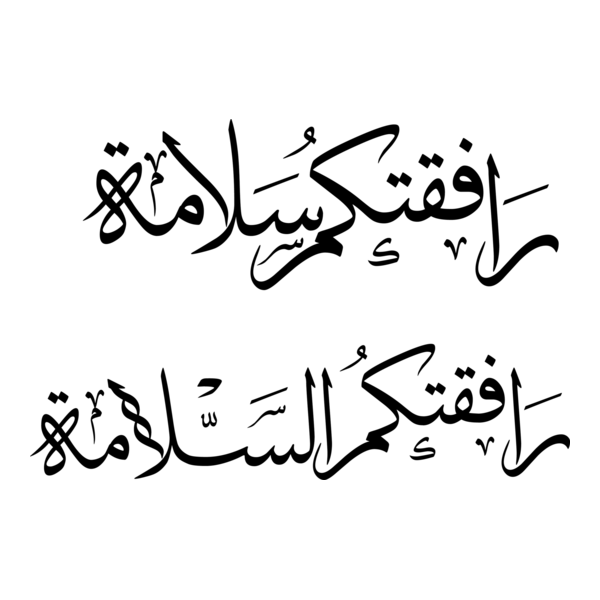 رافقتكم سلامة
رافقتكم السلامة